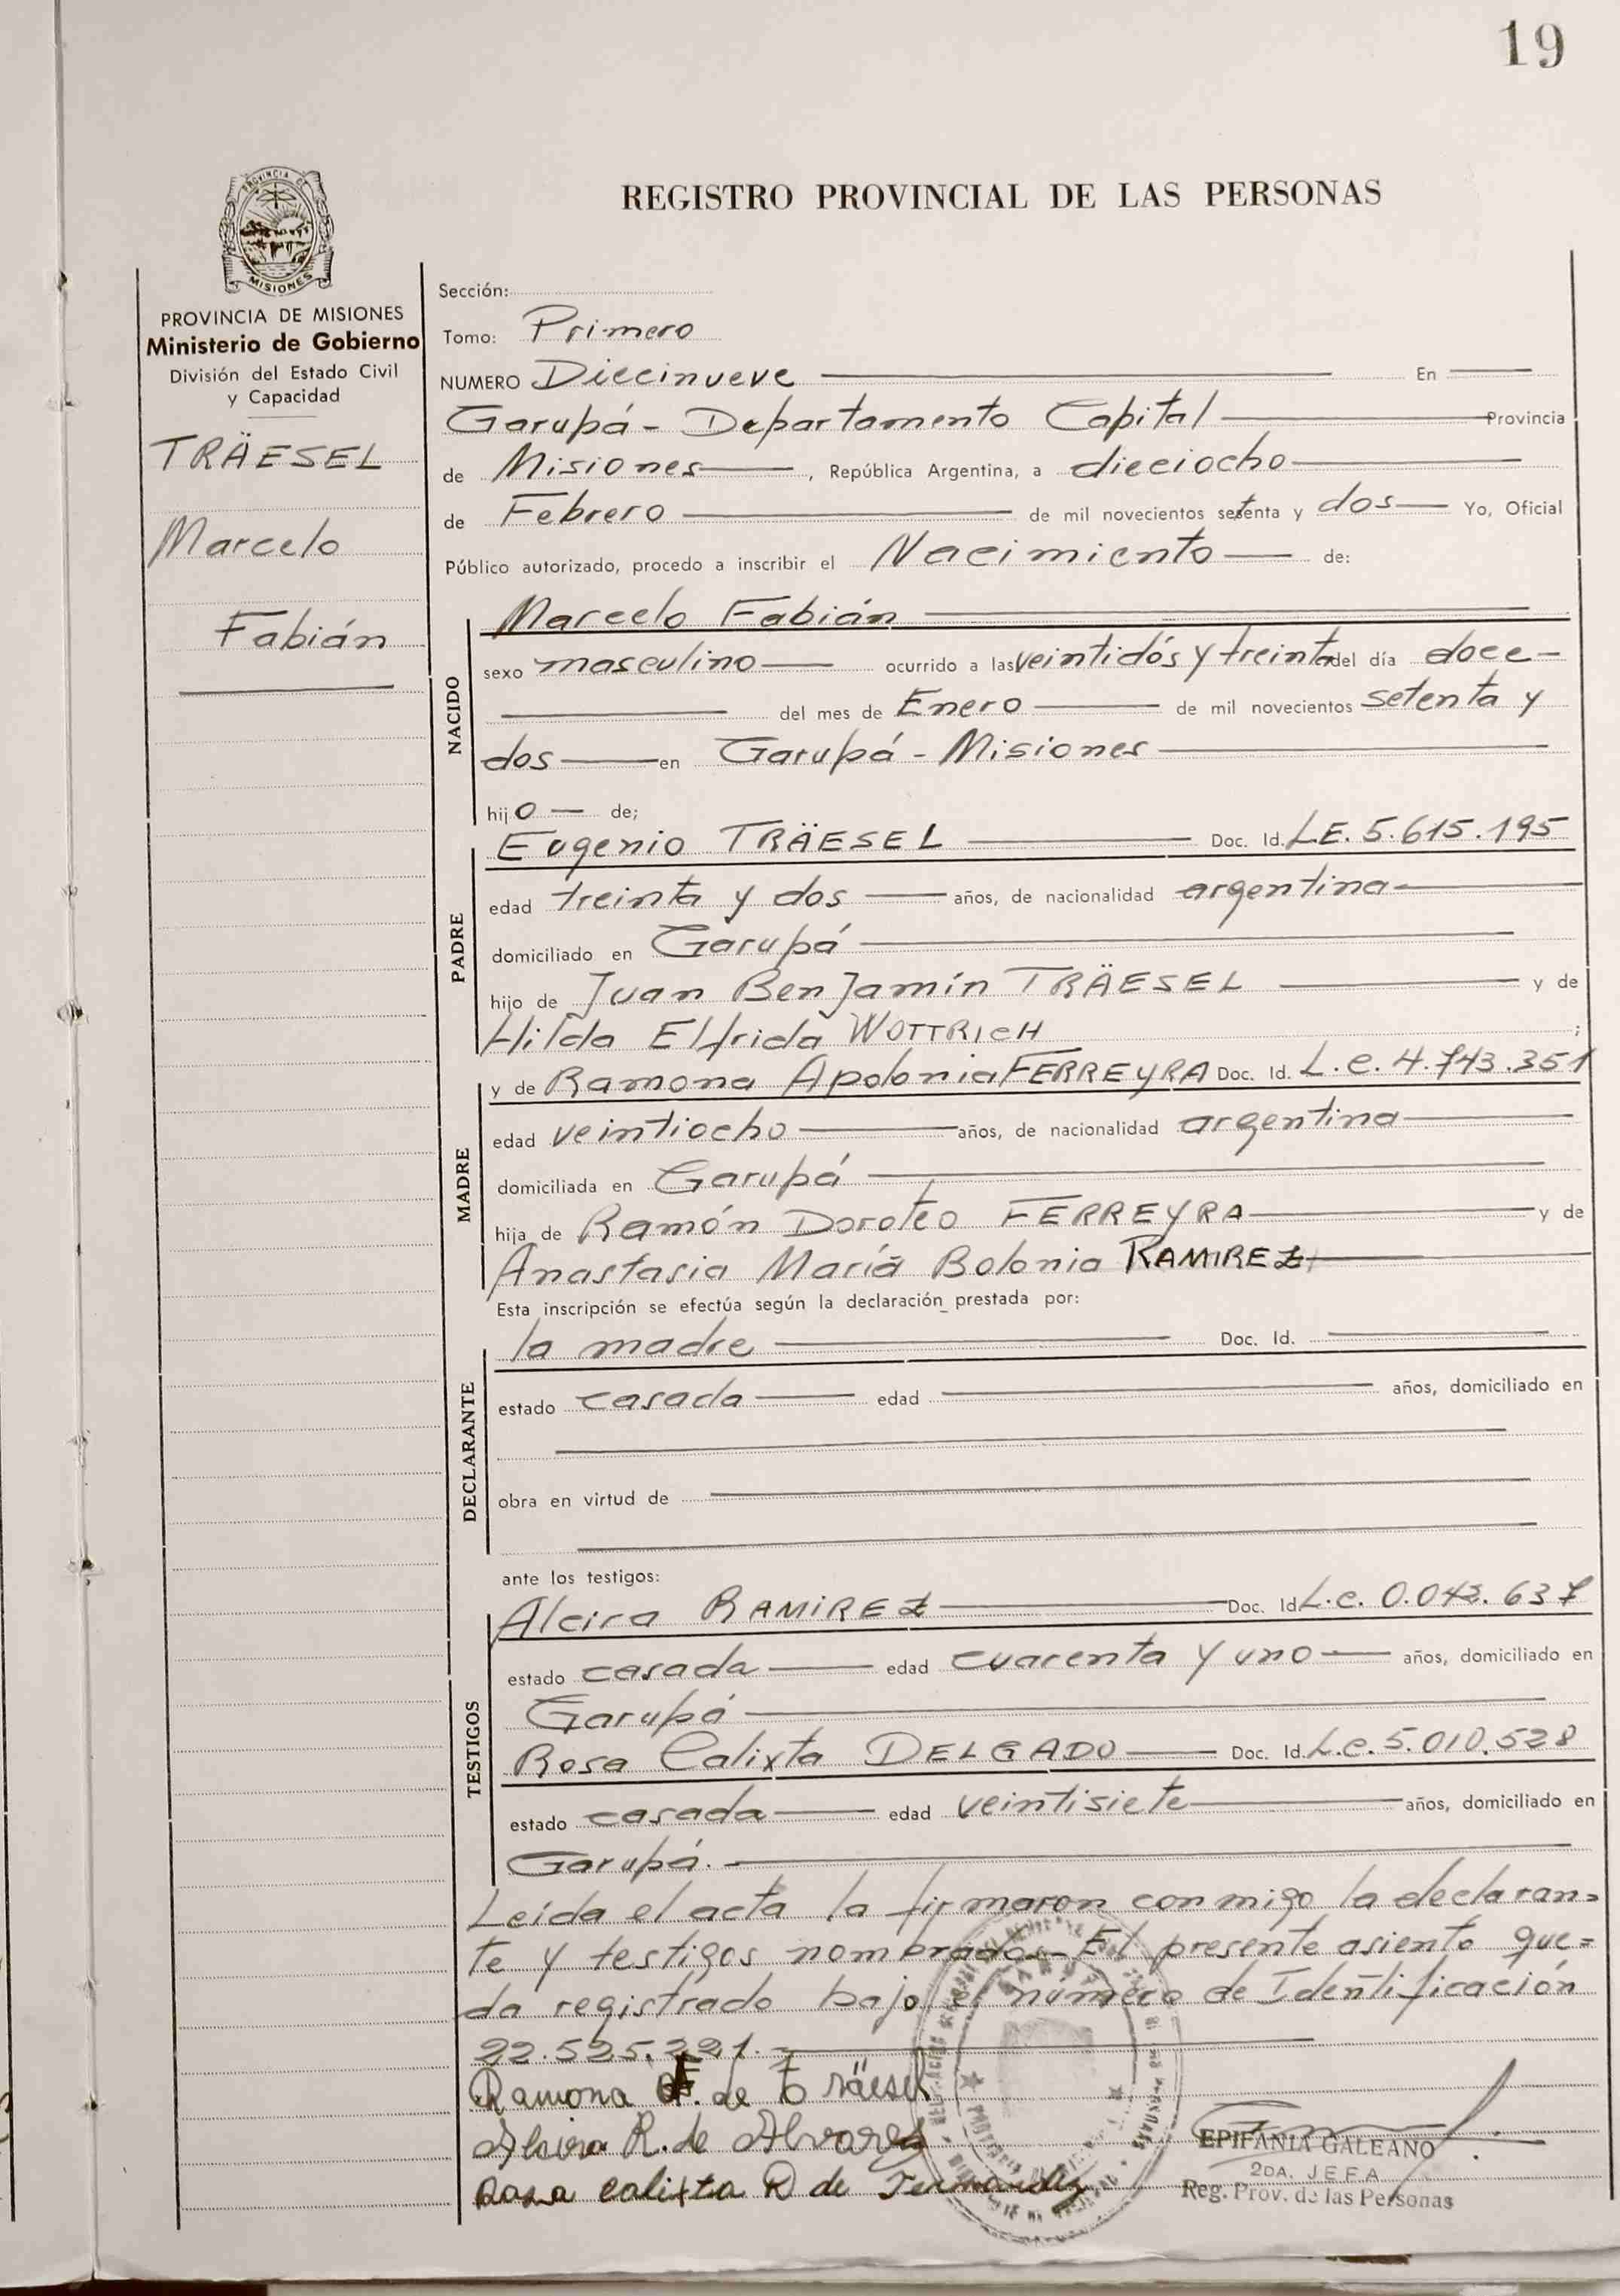 19
REGISTRO PROVINCIAL DE LAS PERSONAS
PROVINCIA DE
MISIONES
PROVINCIA DE MISIONES
Ministerio de Gobierno
División del Estado Civil
y Capacidad
TRÄESEL
Marcelo
Fabián
Sección:
Tomo: Primero
NUMERO Diecinueve En
Garupá - Departamento Capital Provincia
de Misiones, República Argentina, a dieciocho
de Febrero de mil novecientos setenta y dos Yo, Oficial
Público autorizado, procedo a inscribir el Nacimiento de:
NACIDO
Marcelo Fabián
sexo masculino ocurrido a las veintidós y treinta del día doce
del mes de Enero de mil novecientos setenta y
dos en Garupá - Misiones
hijo de;
PADRE
Eugenio TRÄESEL Doc. Id. L.E. 5.615.195
edad treinta y dos años, de nacionalidad argentina
domiciliado en Garupá
hijo de Juan Benjamín TRÄESEL y de
Hilda Elfrida WOTTRICH ;
MADRE
y de Ramona Apolonia FERREYRA Doc. Id. L.C. 4.743.351
edad veintiocho años, de nacionalidad argentina
domiciliada en Garupá
hija de Ramón Doroteo FERREYRA y de
Anastasia María Bolonia RAMIREZ
Esta inscripción se efectúa según la declaración prestada por:
DECLARANTE
la madre Doc. Id.
estado casada edad años, domiciliado en
obra en virtud de
ante los testigos:
TESTIGOS
Alcira RAMIREZ Doc. Id. L.C. 0.043.637
estado casada edad cuarenta y uno años, domiciliado en
Garupá
Rosa Calixta DELGADO Doc. Id. L.C. 5.010.528
estado casada edad veintisiete años, domiciliado en
Garupá.
Leída el acta la firmaron conmigo la declaran=
te y testigos nombrados - El presente asiento que=
da registrado bajo el número de Identificación
22.525.221.-
Ramona F. de Träesel
Alcira R. de Alvarez
Rosa Calixta D de Fernandez
EPIFANIA GALEANO
2DA. JEFA
Reg. Prov. de las Personas